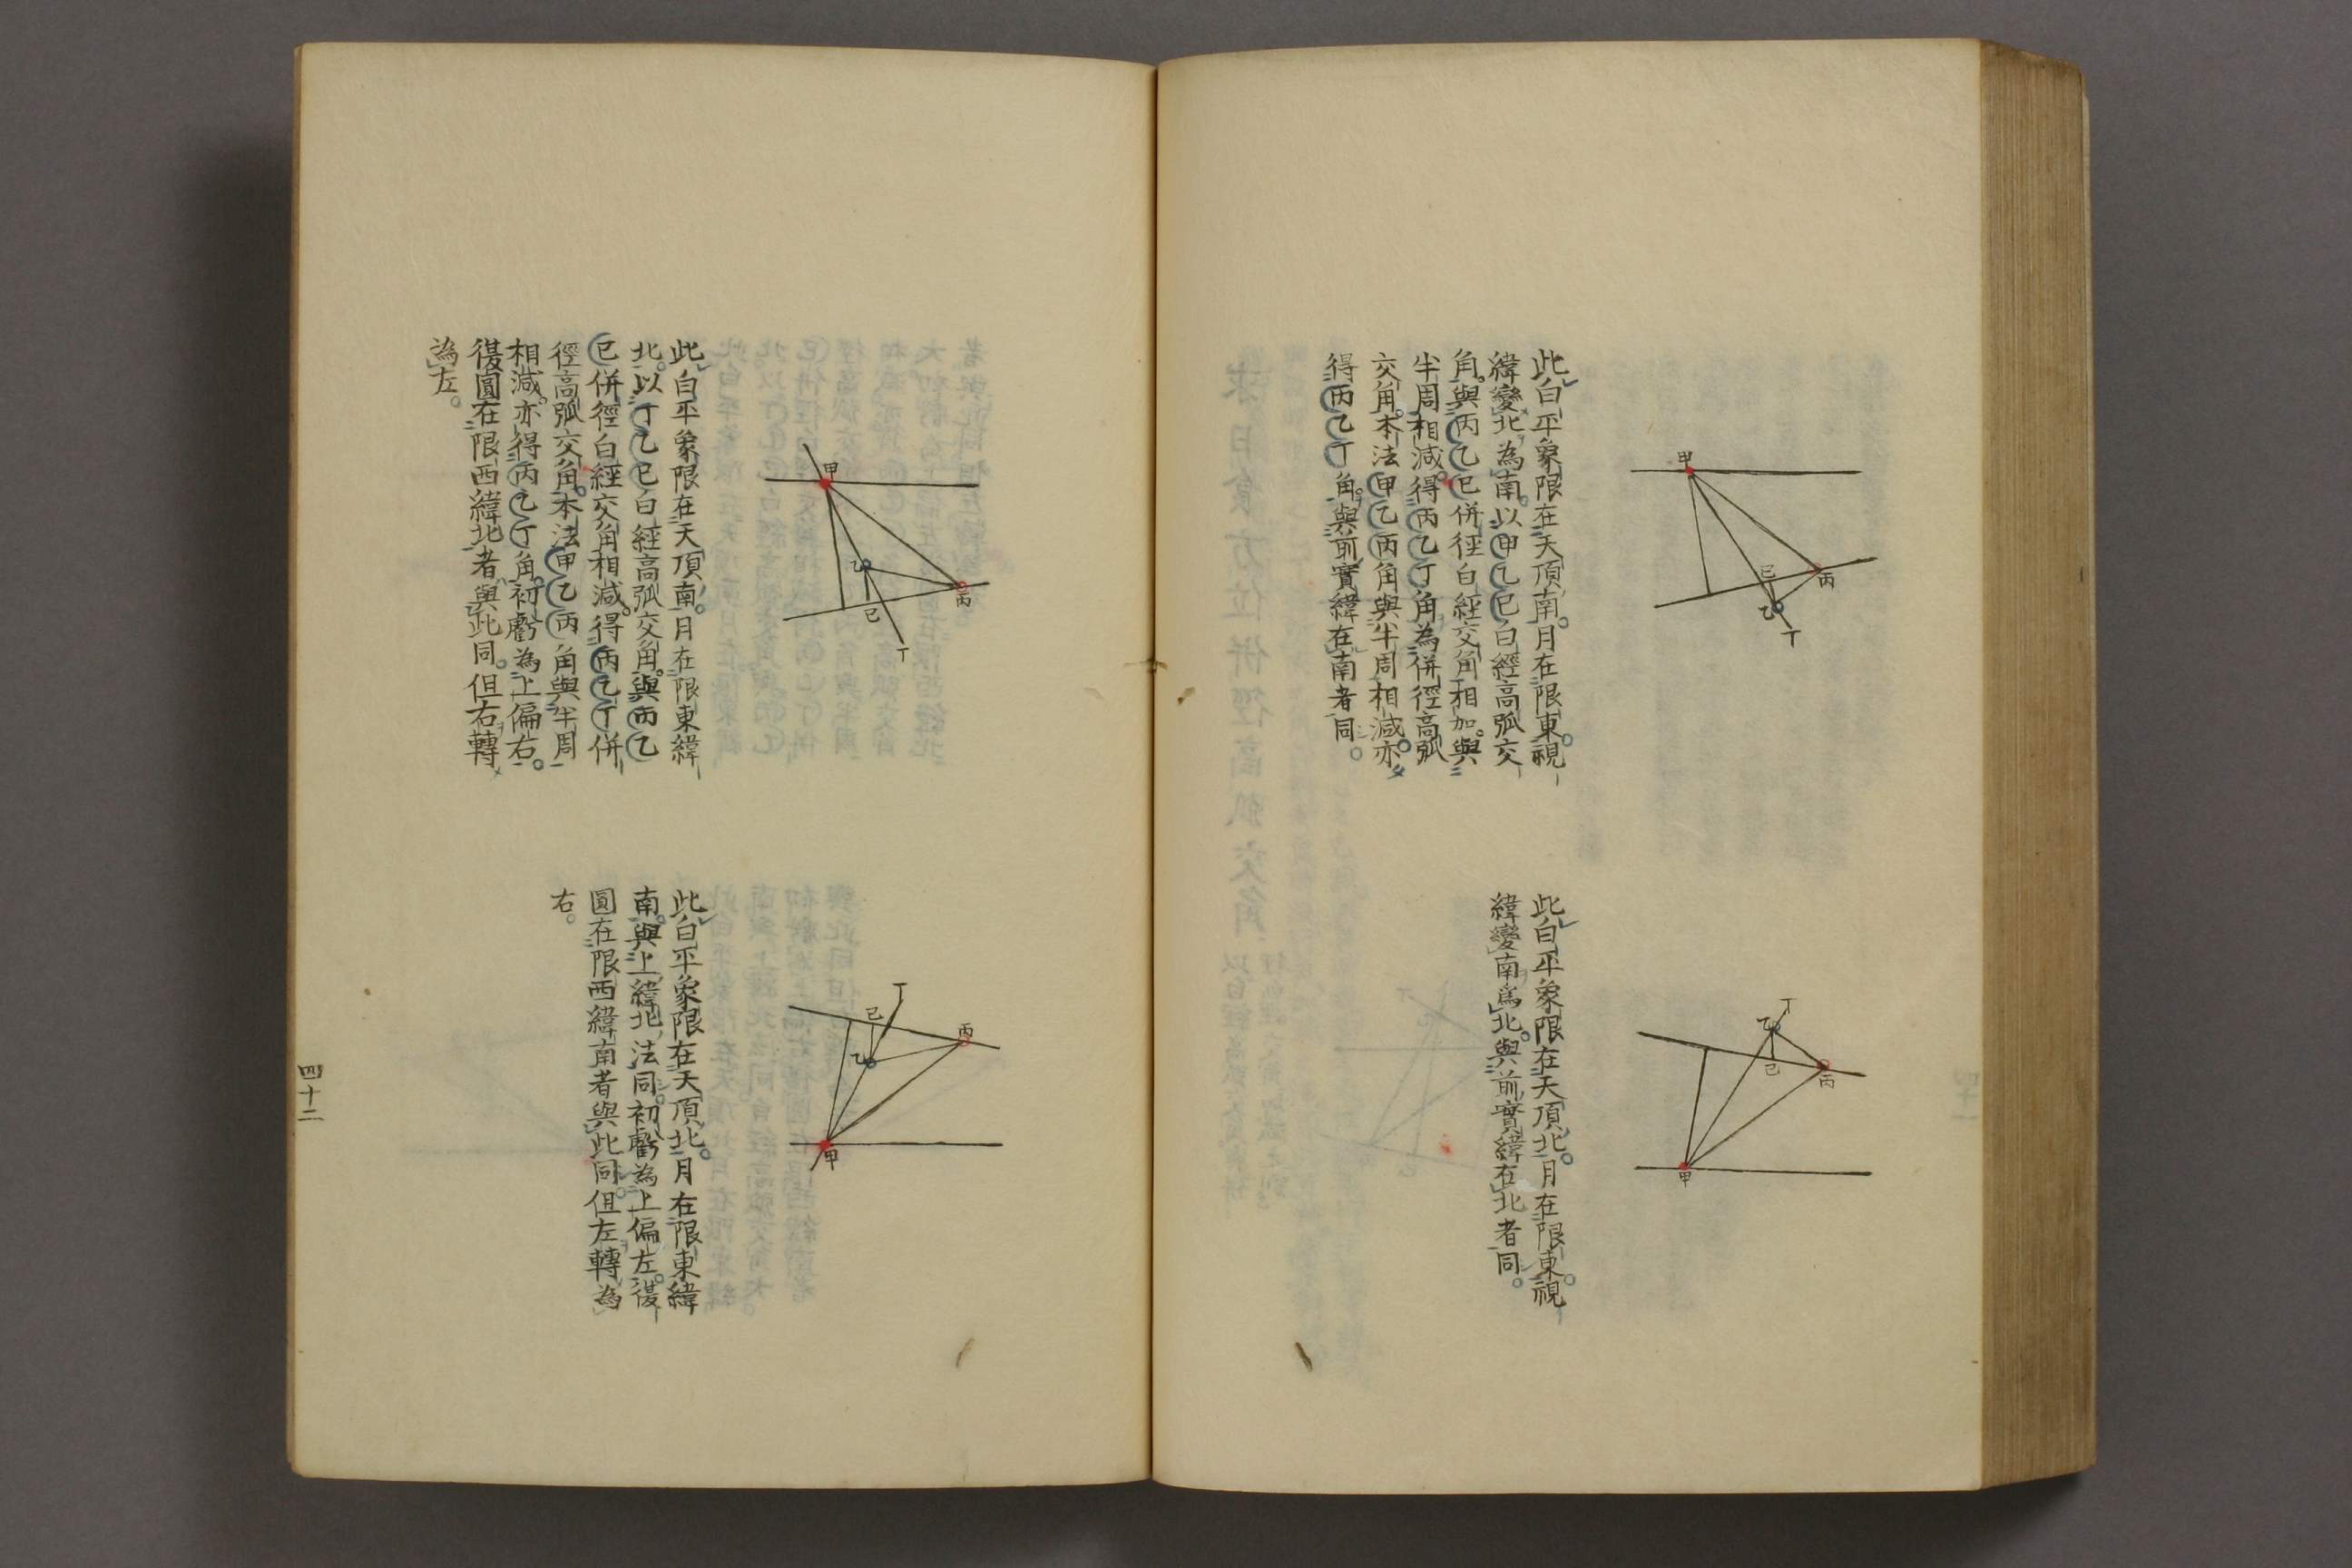 甲
己
丙
乙
丁
此白平象限在天頂南。月在限東。視
緯變北為南。以甲乙巳白經高弧交
角。與丙乙巳併徑白經交角相加。與
半周相減。得丙乙丁角為併徑高弧
交角。本法甲乙丙角與半周相減。亦
得丙乙丁角。與前實緯在南者同。
丁
乙
己
丙
甲
此白平象限在天頂北。月在限東。視
緯變南為北。與前實緯在北者同。
甲
乙
丙
己
丁
此白平象限在天頂南。月在限東緯
北。以丁乙巳白經高弧交角。與丙乙
巳併徑白經交角相減。得丙乙丁併
徑高弧交角。本法甲乙丙角與半周
相減。亦得丙乙丁角。初虧為上偏右。
復圓在限西緯北者與此同。但右轉
為左。
丁
己
丙
乙
甲
此白平象限在天頂北。月在限東緯
南。與上緯北法同。初虧為上偏左。復
圓在限西緯南者與此同。但左轉為
右。
四十二